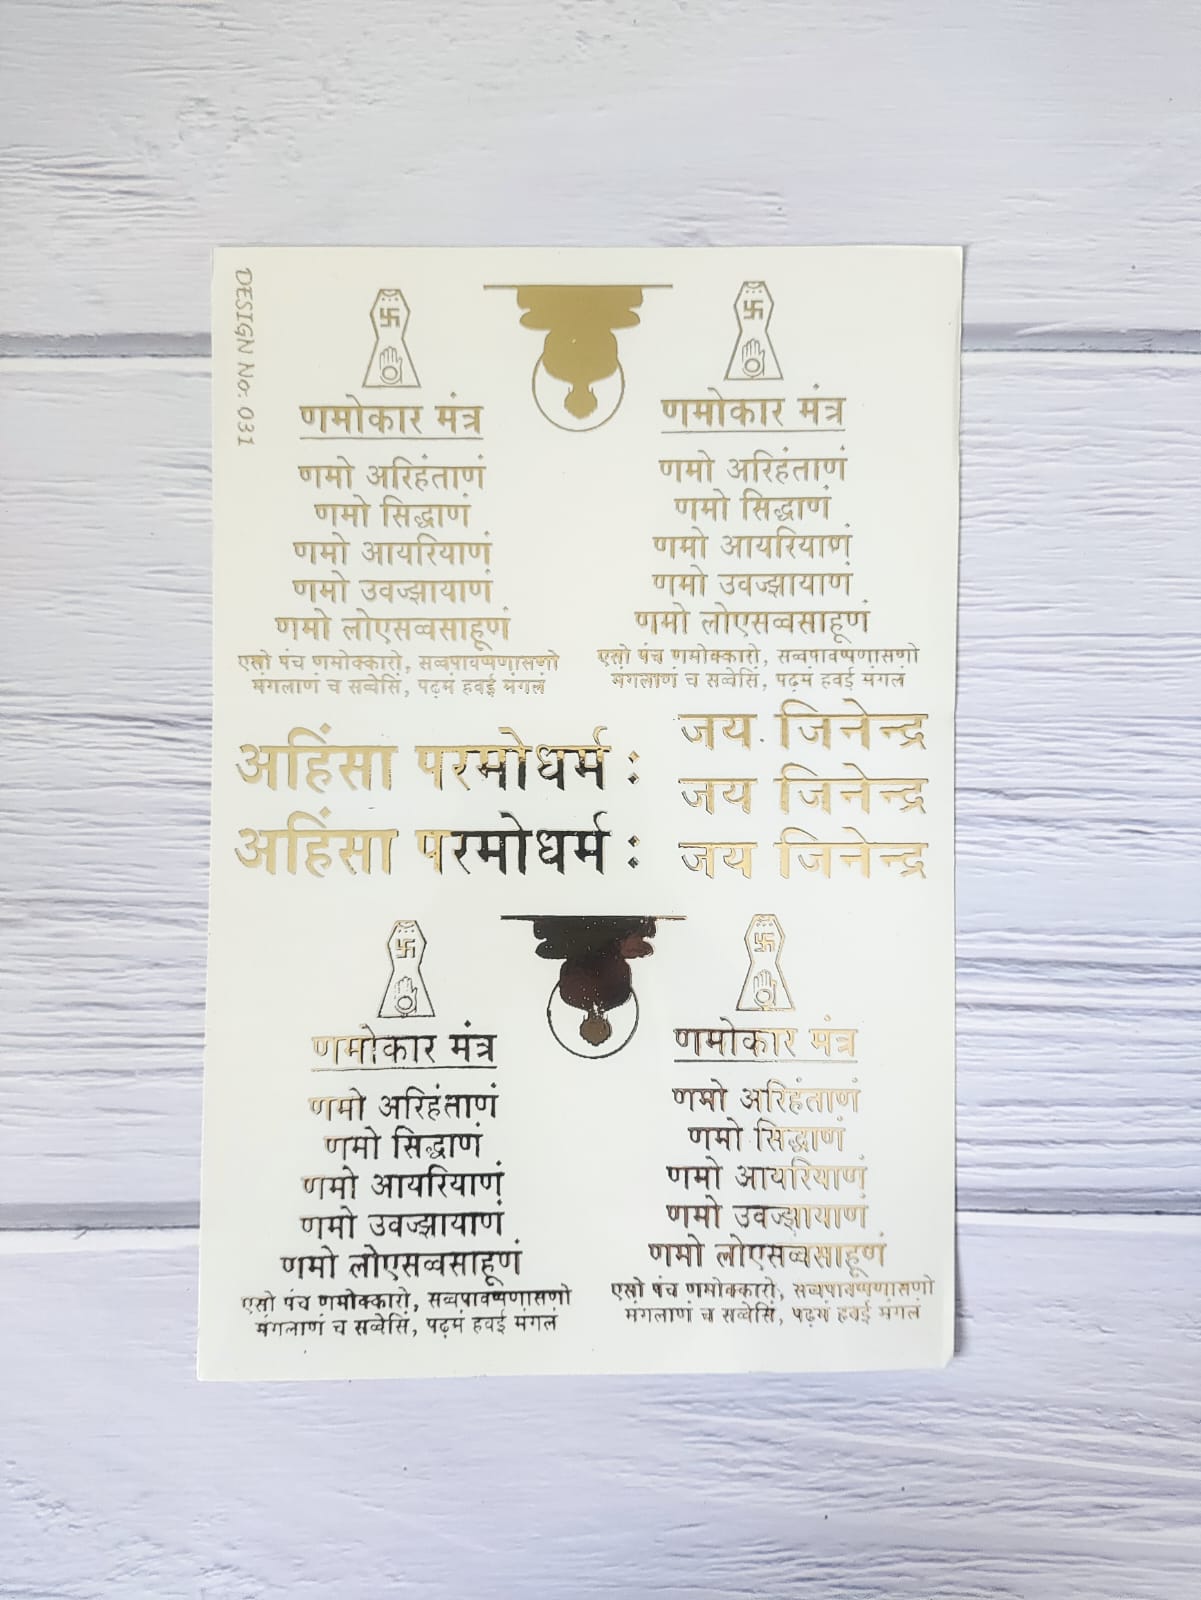 DESIGN No. 031
णमोकार मंत्र
णमो अरिहंताणं
णमो सिद्धाणं
णमो आयरियाणं
णमो उवज्झायाणं
णमो लोएसव्वसाहूणं
एसो पंच णमोक्कारो, सव्वपावप्पणासणो
मंगलाणं च सव्वेसिं, पढ़मं हवई मंगलं
णमोकार मंत्र
णमो अरिहंताणं
णमो सिद्धाणं
णमो आयरियाणं
णमो उवज्झायाणं
णमो लोएसव्वसाहूणं
एसो पंच णमोक्कारो, सव्वपावप्पणासणो
मंगलाणं च सव्वेसिं, पढ़मं हवई मंगलं
अहिंसा परमोधर्म :
अहिंसा परमोधर्म :
जय जिनेन्द्र
जय जिनेन्द्र
जय जिनेन्द्र
णमोकार मंत्र
णमो अरिहंताणं
णमो सिद्धाणं
णमो आयरियाणं
णमो उवज्झायाणं
णमो लोएसव्वसाहूणं
एसो पंच णमोक्कारो, सव्वपावप्पणासणो
मंगलाणं च सव्वेसिं, पढ़मं हवई मंगलं
णमोकार मंत्र
णमो अरिहंताणं
णमो सिद्धाणं
णमो आयरियाणं
णमो उवज्झायाणं
णमो लोएसव्वसाहूणं
एसो पंच णमोक्कारो, सव्वपावप्पणासणो
मंगलाणं च सव्वेसिं, पढ़मं हवई मंगलं